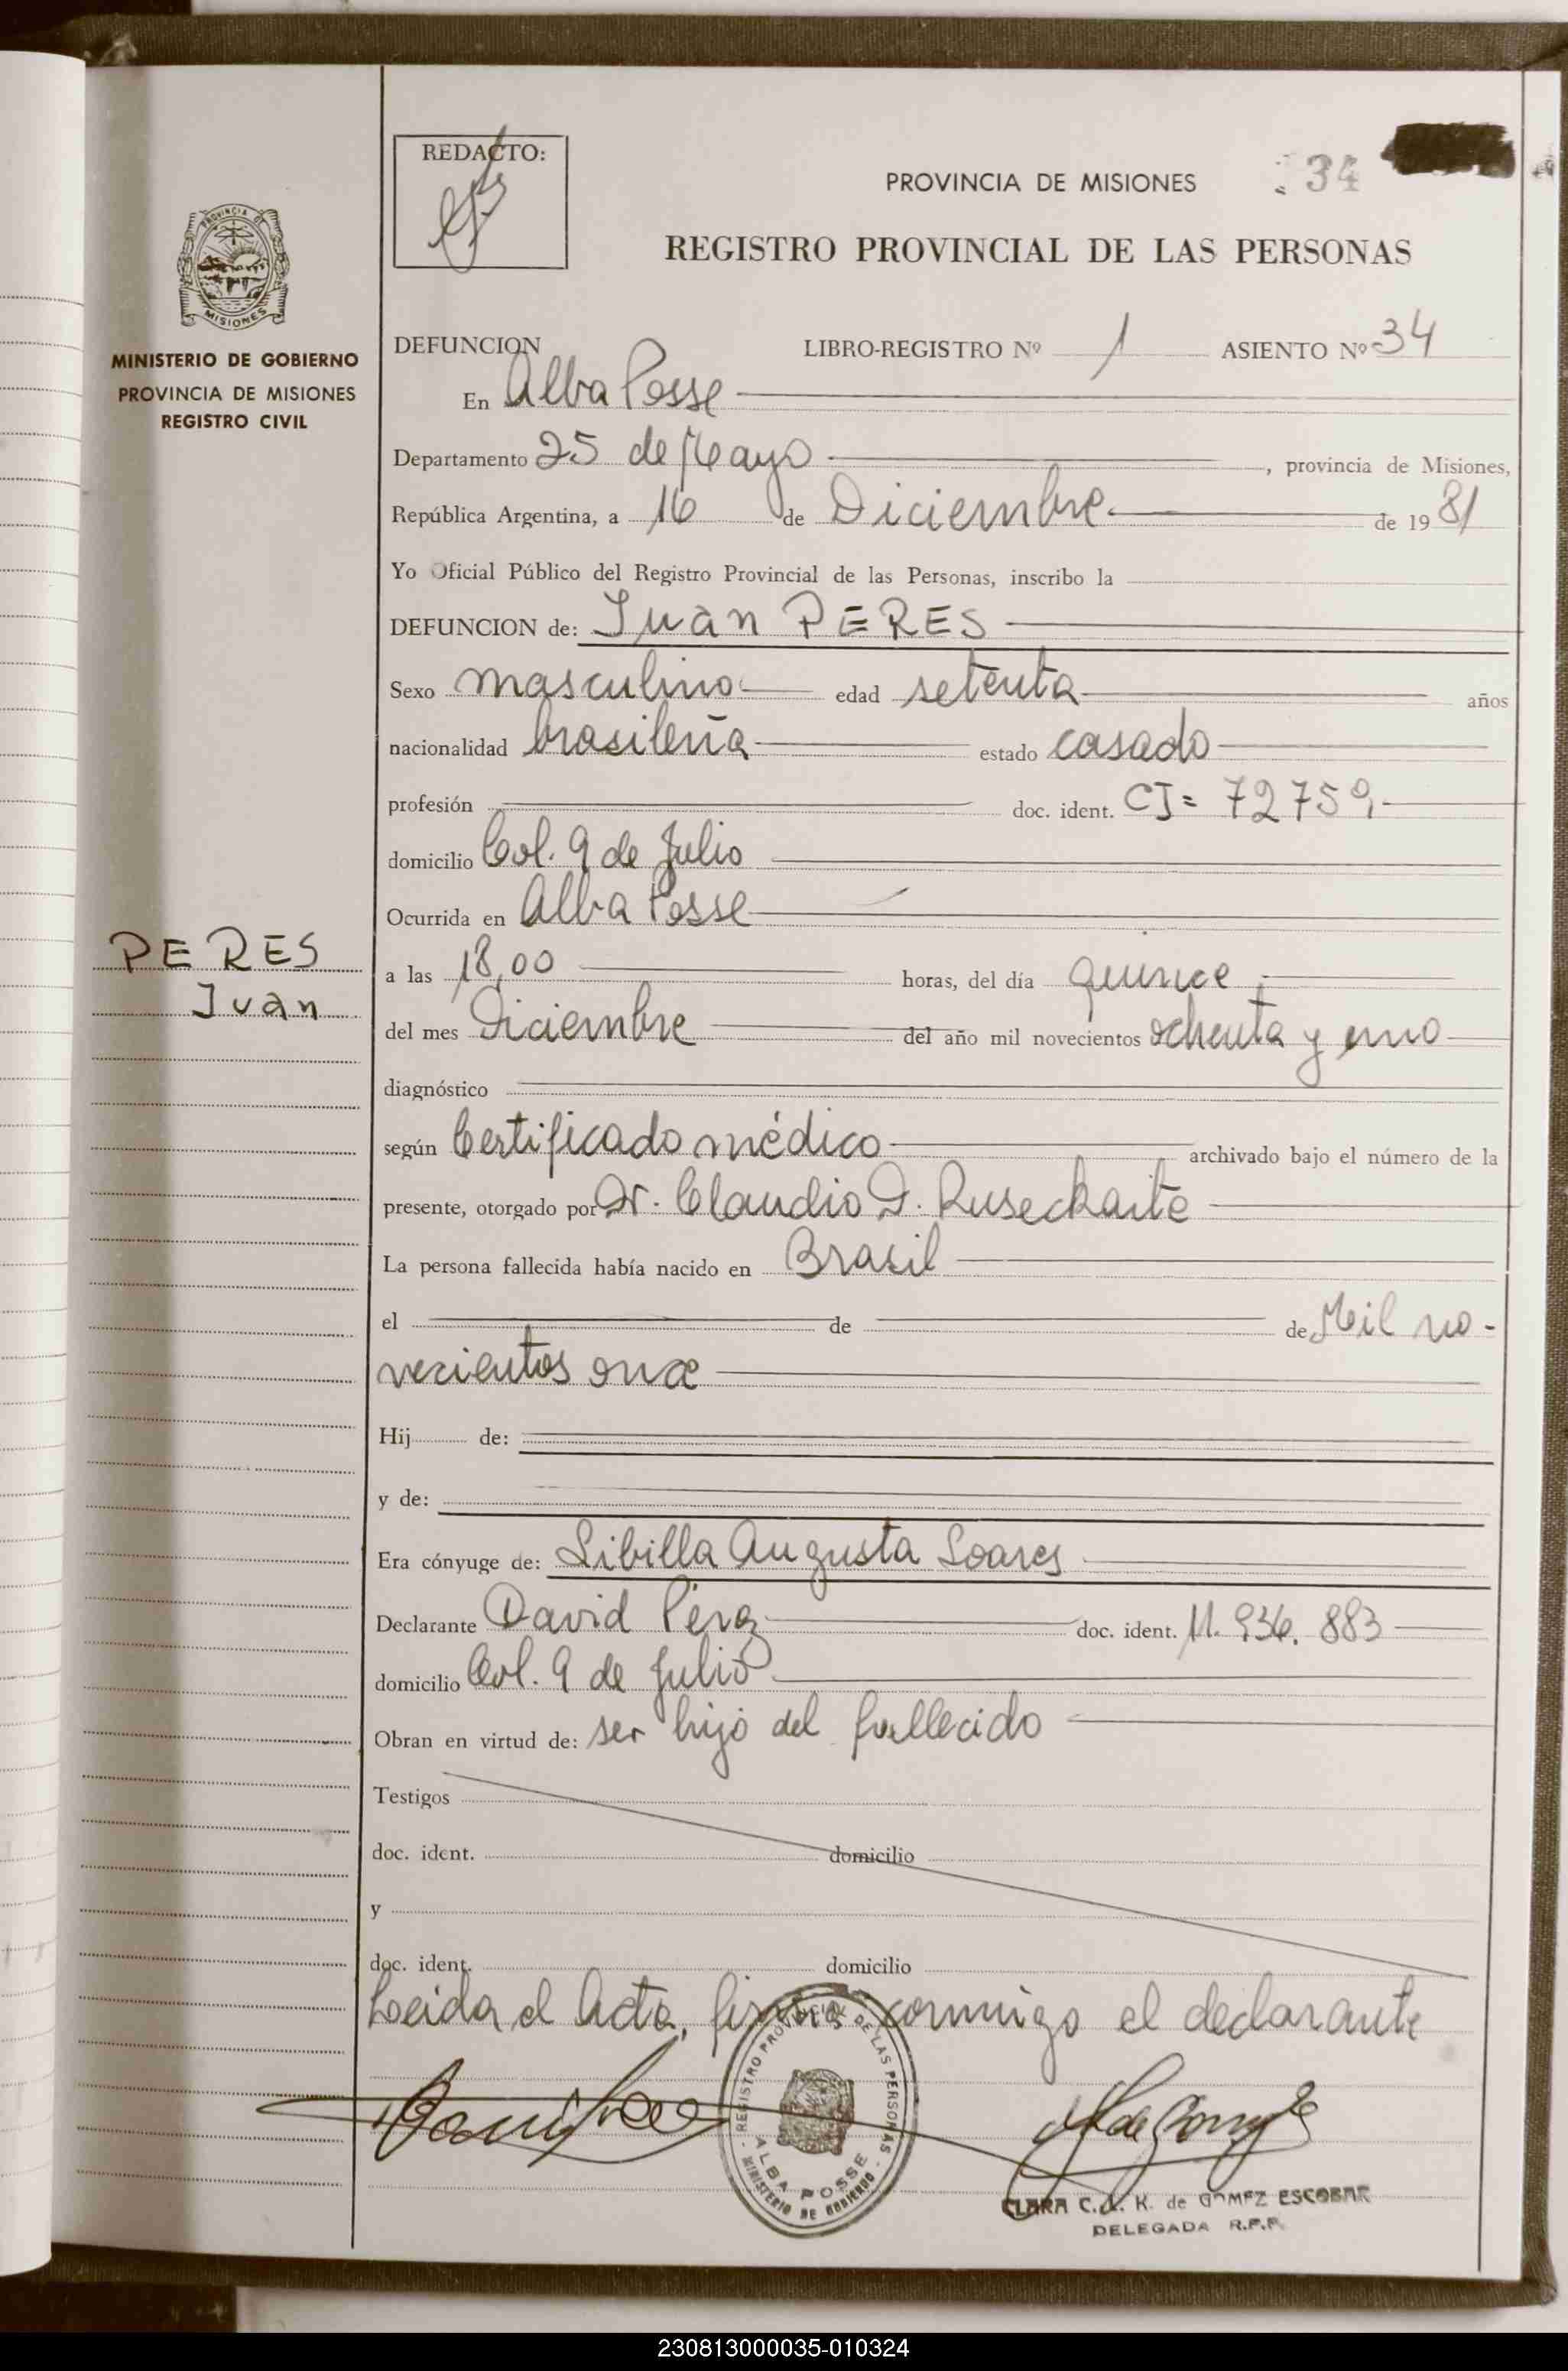 REDACTO:
PROVINCIA DE MISIONES
34
REGISTRO PROVINCIAL DE LAS PERSONAS
PROVINCIA DE
MISIONES
MINISTERIO DE GOBIERNO
PROVINCIA DE MISIONES
REGISTRO CIVIL
PERES
Juan
DEFUNCION
LIBRO-REGISTRO Nº 1 ASIENTO Nº 34
En Alba Posse
Departamento 25 de Mayo, provincia de Misiones,
República Argentina, a 16 de Diciembre. de 1981
Yo Oficial Público del Registro Provincial de las Personas, inscribo la
DEFUNCION de: Juan PERES
Sexo masculino edad setenta años
nacionalidad brasileña estado casado
profesión doc. ident. CI= 72759
domicilio Col. 9 de Julio
Ocurrida en Alba Posse
a las 18,00 horas, del día quince
del mes Diciembre del año mil novecientos ochenta y uno
diagnóstico
según Certificado médico archivado bajo el número de la
presente, otorgado por Dr. Claudio D. Ruseckaite
La persona fallecida había nacido en Brasil
el de de Mil no-
vecientos once
Hij de:
y de:
Era cónyuge de: Sibilla Augusta Soares
Declarante David Pérez doc. ident. 11.936.883
domicilio Col. 9 de Julio
Obran en virtud de: ser hijo del fallecido
Testigos
doc. ident. domicilio
y
doc. ident. domicilio
Leida el Acta, firma conmigo el declarante
REGISTRO PROVINCIAL DE LAS PERSONAS
ALBA POSSE
MINISTERIO DE GOBIERNO
CLARA C. K. de GOMEZ ESCOBAR
DELEGADA R.P.P.
230813000035-010324